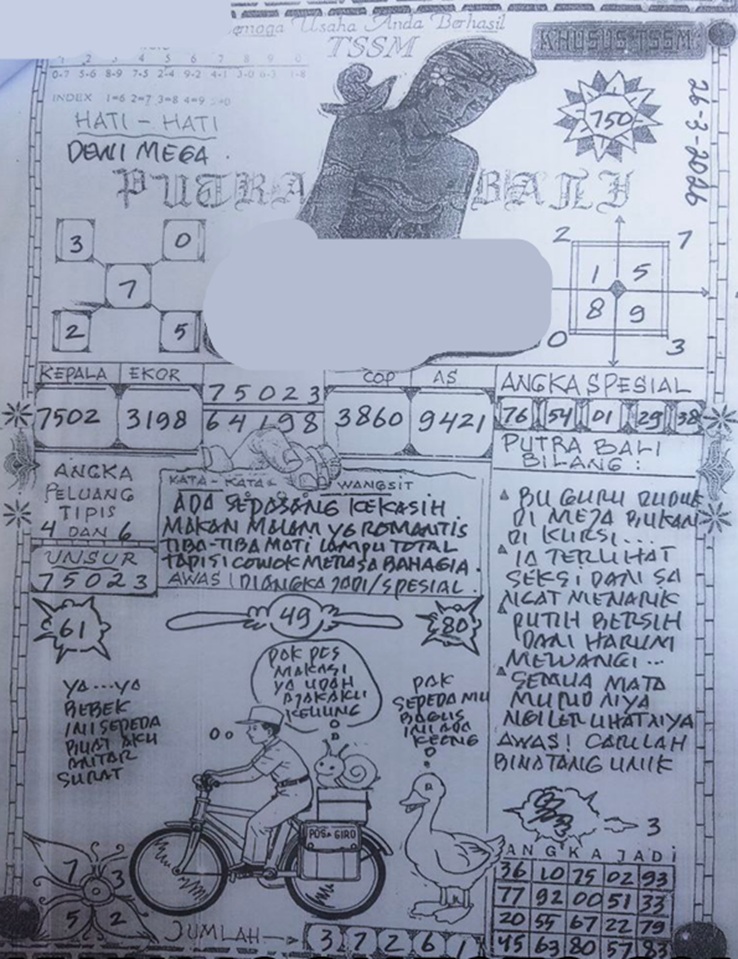 Semoga Usaha Anda Berhasil
TSSM
KHUSUS TSSM
1 2 3 4 5 6 7 8 9 0
0-7 5-6 8-9 7-5 2-4 9-2 4-1 3-0 6-3 1-8
INDEX 1=6 2=7 3=8 4=9 5=0
HATI - HATI
DEWI MEGA
750
26-3-2026
PUTRA BALI
3 0
7
2 5
2 7
1 5
8 9
0 3
KEPALA EKOR
7502 3198
75023
64198
COP AS
3860 9421
ANGKA SPESIAL
76 54 01 29 38
ANGKA
PELUANG
TIPIS
4 DAN 6
UNSUR
75023
KATA - KATA WANGSIT
ADA SEPASANG KEKASIH
MAKAN MALAM YG ROMANTIS
TIBA-TIBA MATI LAMPU TOTAL
TAPI SI COWOK MERASA BAHAGIA.
AWAS! DIANGKA JADI/SPESIAL.
PUTRA BALI
BILANG :
BU GURU DUDUK
DI MEJA BUKAN
DI KURSI...
IA TERLIHAT
SEKSI DAN SA
NGAT MENARIK
PUTIH BERSIH
DAN HARUM
MEWANGI...
SEMUA MATA
MURIDNYA
NGILER LIHATNYA
AWAS! CARILAH
BINATANG UNIK
61
49
80
YA...YA
BEBEK
INI SEPEDA
BUAT AKU
ANTAR
SURAT
PAK POS
MAKASI
YA UDAH
AJAK AKU
KELILING
PAK
SEPEDA MU
BAGUS
INI ADA
KEONG
POS & GIRO
7 3
5 2
JUMLAH → 3 7 2 6 1
3
ANGKA JADI
36 10 75 02 93
77 92 00 51 33
20 55 67 22 79
45 63 80 57 83